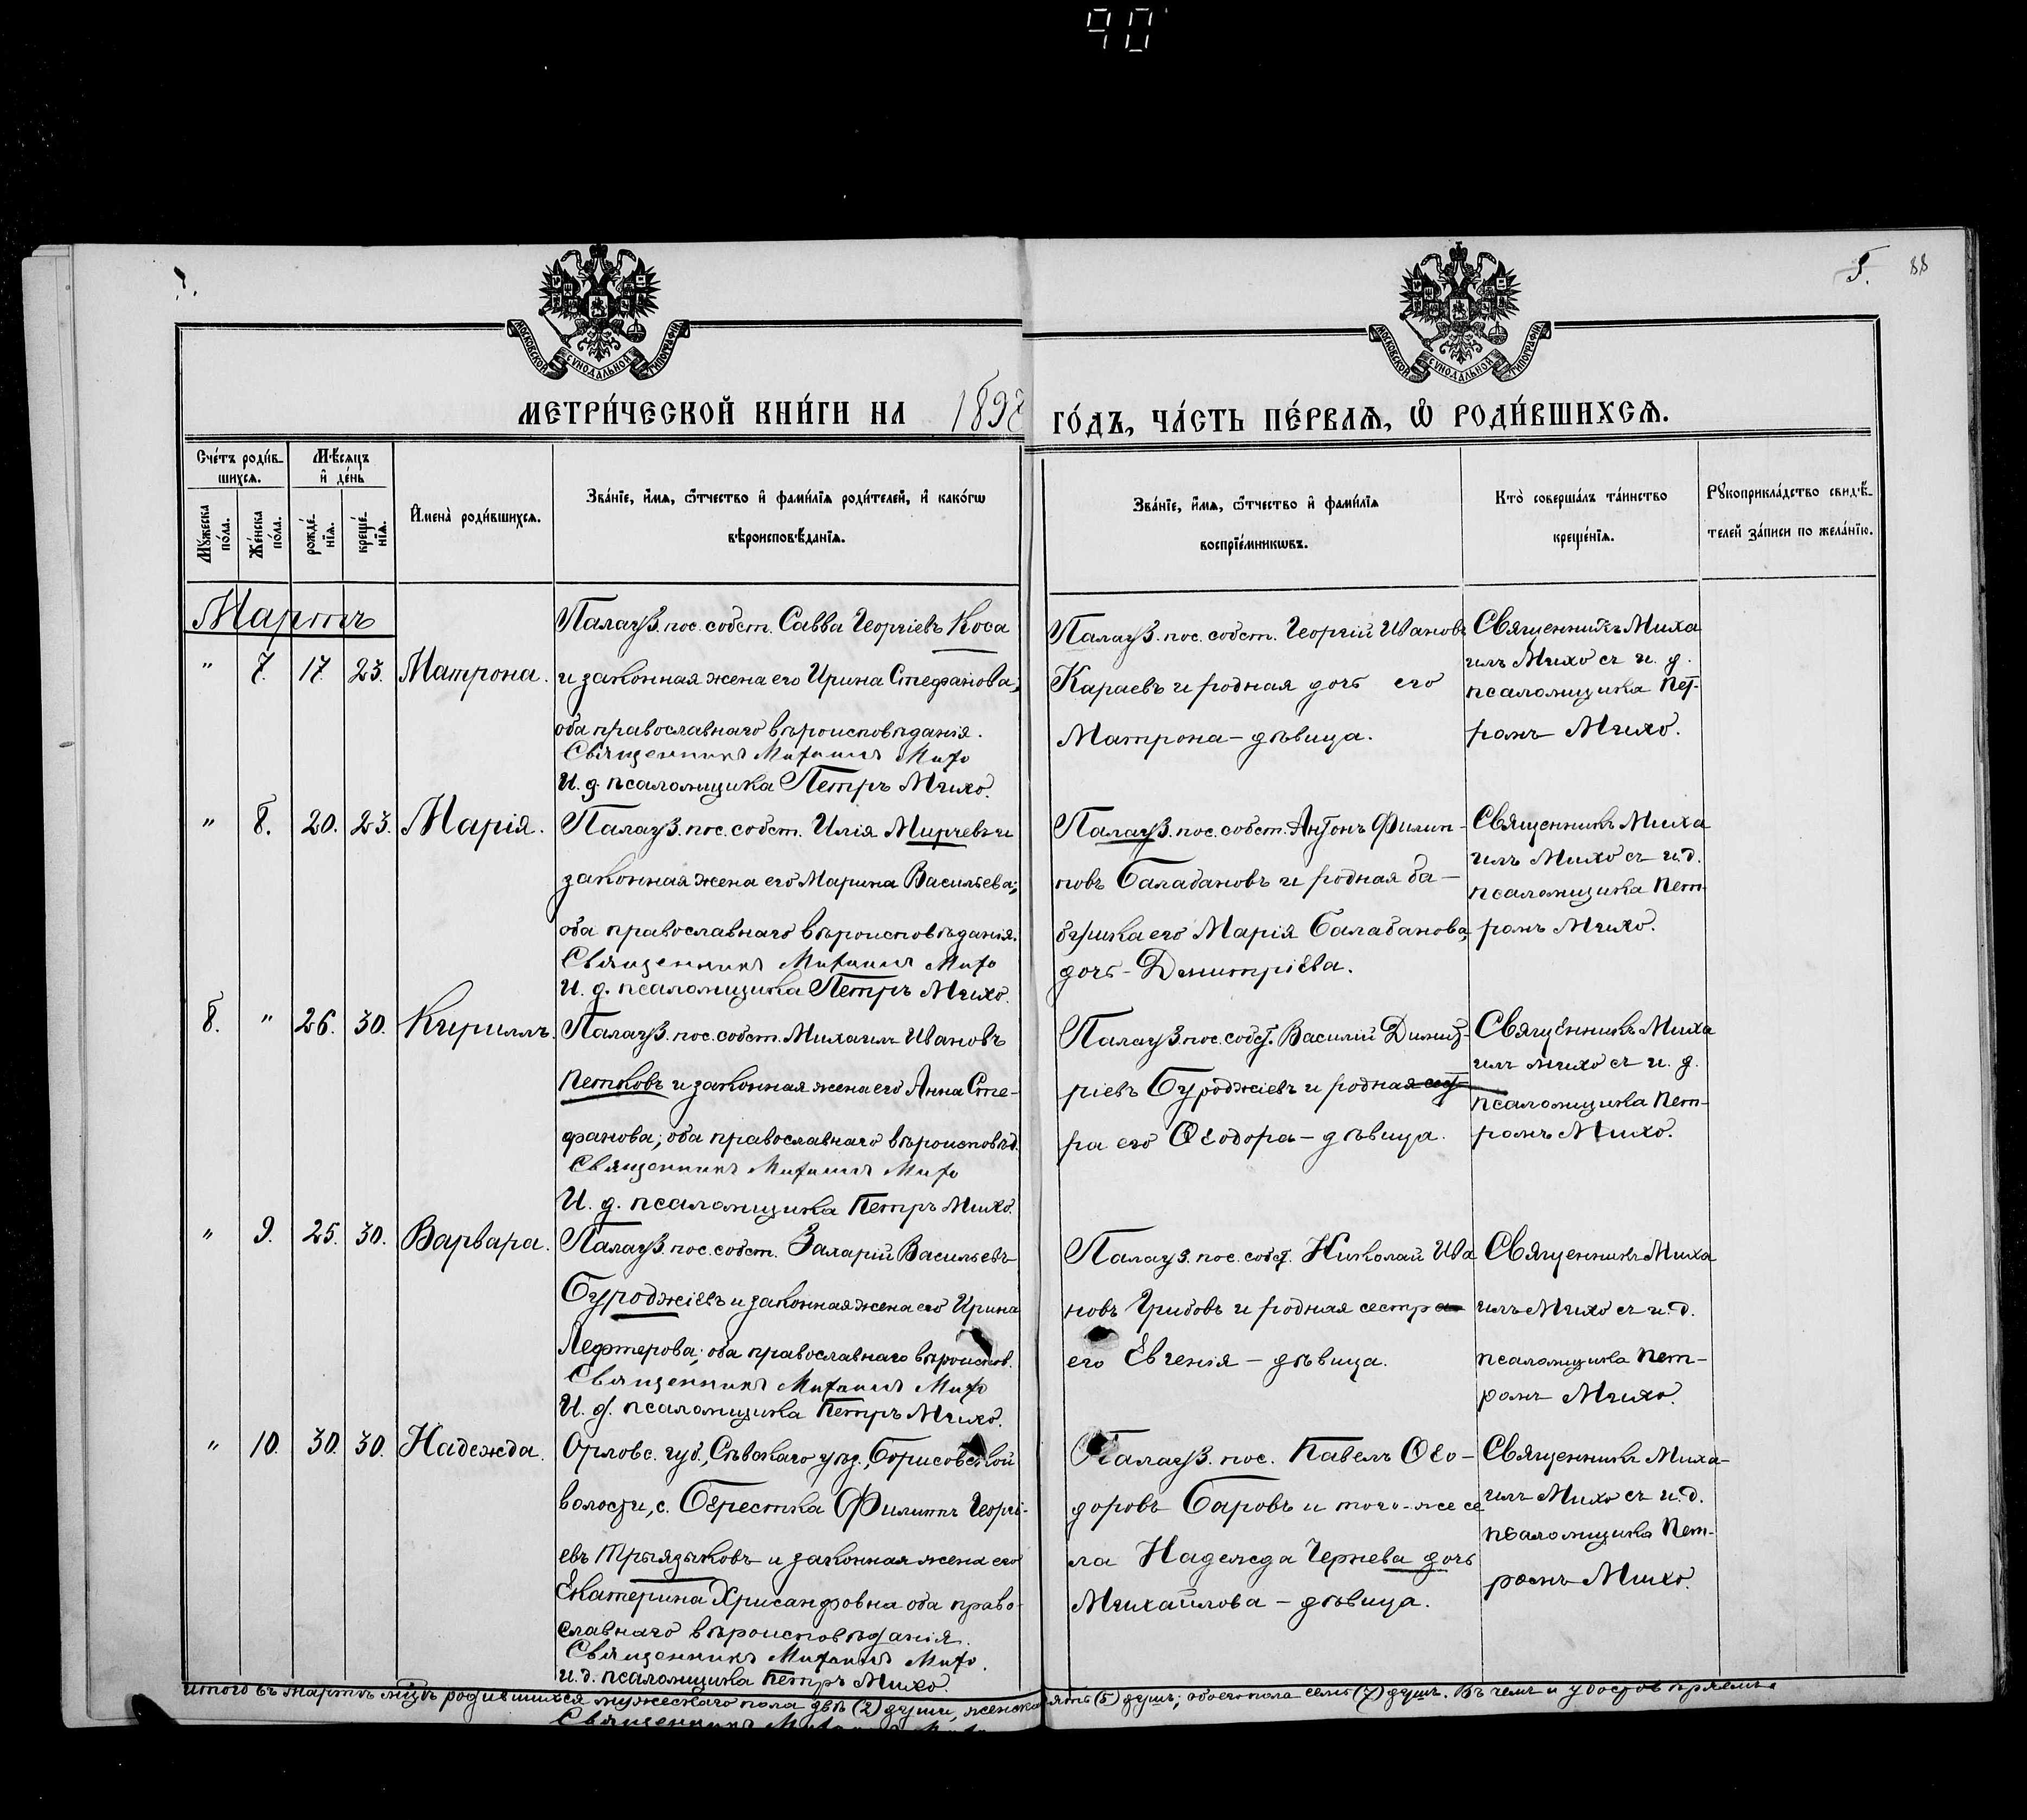 90
5. 88
МОСКОВСКОЙ СУНОДАЛЬНОЙ ТИПОГРАФІИ
МОСКОВСКОЙ СУНОДАЛЬНОЙ ТИПОГРАФІИ
МЕТРИ́ЧЕСКОЙ КНИ́ГИ НА 1898 ГО́ДЪ, ЧА́СТЬ ПЕ́РВАѦ, Ѡ҆ РОДИ́ВШИХСѦ.
Сче́тъ роди́в-
шихсѧ.
Мꙋ́жеска
по́ла.
Же́нска
по́ла.
Мѣ́сѧцъ
и҆ де́нь
рожде́-
нїѧ.
креще́-
нїѧ.
И҆мена̀ роди́вшихсѧ.
Зва́нїе, и҆́мѧ, ѻ҆́тчество и҆ фами́лїѧ роди́телей, и҆ како́гѡ
вѣроисповѣ́данїѧ.
Зва́нїе, и҆́мѧ, ѻ҆́тчество и҆ фами́лїѧ
воспрїе́мникѡвъ.
Кто̀ соверша́лъ та́инство
креще́нїѧ.
Рꙋкоприкла́дство свидѣ́-
телей за́писи по жела́нїю.
Мартъ
" 7. 17. 23. Матрона.
Палауз. пос. собст. Савва Георгіевъ Коса
и законная жена его Ирина Стефанова;
оба православнаго вѣроисповѣданія.
Священникъ Михаилъ Михо
И. д. псаломщика Петръ Михо.
Палауз. пос. собст. Георгій Ивановъ
Караевъ и родная дочь его
Матрона – дѣвица.
Священникъ Миха
илъ Михо съ и. д.
псаломщика Пет-
ромъ Михо.
" 8. 20. 23. Марія.
Палауз. пос. собст. Илія Мирчевъ и
законная жена его Марина Васильева;
оба православнаго вѣроисповѣданія.
Священникъ Михаилъ Михо
И. д. псаломщика Петръ Михо.
Палауз. пос. собст. Антонъ Филип-
повъ Балабановъ и родная ба-
бушка его Марія Балабанова,
дочь – Димитріева.
Священникъ Миха
илъ Михо съ и. д.
псаломщика Пет-
ромъ Михо.
8. " 26. 30. Кириллъ.
Палауз. пос. собст. Михаилъ Ивановъ
Петковъ и законная жена его Анна Сте-
фанова; оба православнаго вѣроисповѣд.
Священникъ Михаилъ Михо
И. д. псаломщика Петръ Михо.
Палауз. пос. собст. Василій Димит-
ріевъ Буроджіевъ и родная сест-
ра его Ѳеодора – дѣвица.
Священникъ Миха
илъ Михо съ и. д.
псаломщика Пет-
ромъ Михо.
" 9. 25. 30. Варвара.
Палауз. пос. собст. Захарій Васильевъ
Буроджіевъ и законная жена его Ирина
Лефтерова; оба православнаго вѣроисповѣд.
Священникъ Михаилъ Михо
И. д. псаломщика Петръ Михо.
Палауз. пос. собст. Николай Ива
новъ Грибовъ и родная сестра
его Евгенія – дѣвица.
Священникъ Миха
илъ Михо съ и. д.
псаломщика Пет-
ромъ Михо.
" 10. 30. 30. Надежда.
Орловс. губ., Сѣвскаго уѣз., Борисовской
волости, с. Берестка Филиппъ Георгі-
евъ Трыязыковъ и законная жена его
Екатерина Хрисанфовна оба право-
славнаго вѣроисповѣданія.
Священникъ Михаилъ Михо.
и. д. псаломщика Петръ Михо.
Палауз. пос. Павелъ Ѳео-
доровъ Баровъ и того-же се
ла Надежда Чернева дочь
Михайлова – дѣвица.
Священникъ Миха-
илъ Михо съ и. д.
псаломщика Пет-
ромъ Михо.
Итого въ мартѣ м-цѣ родившихся мужескаго пола двѣ (2) души, женска пять (5) душъ; обоего пола семь (7) душъ. Въ чемъ и удостовѣряемъ.
Священникъ Михаилъ Михо